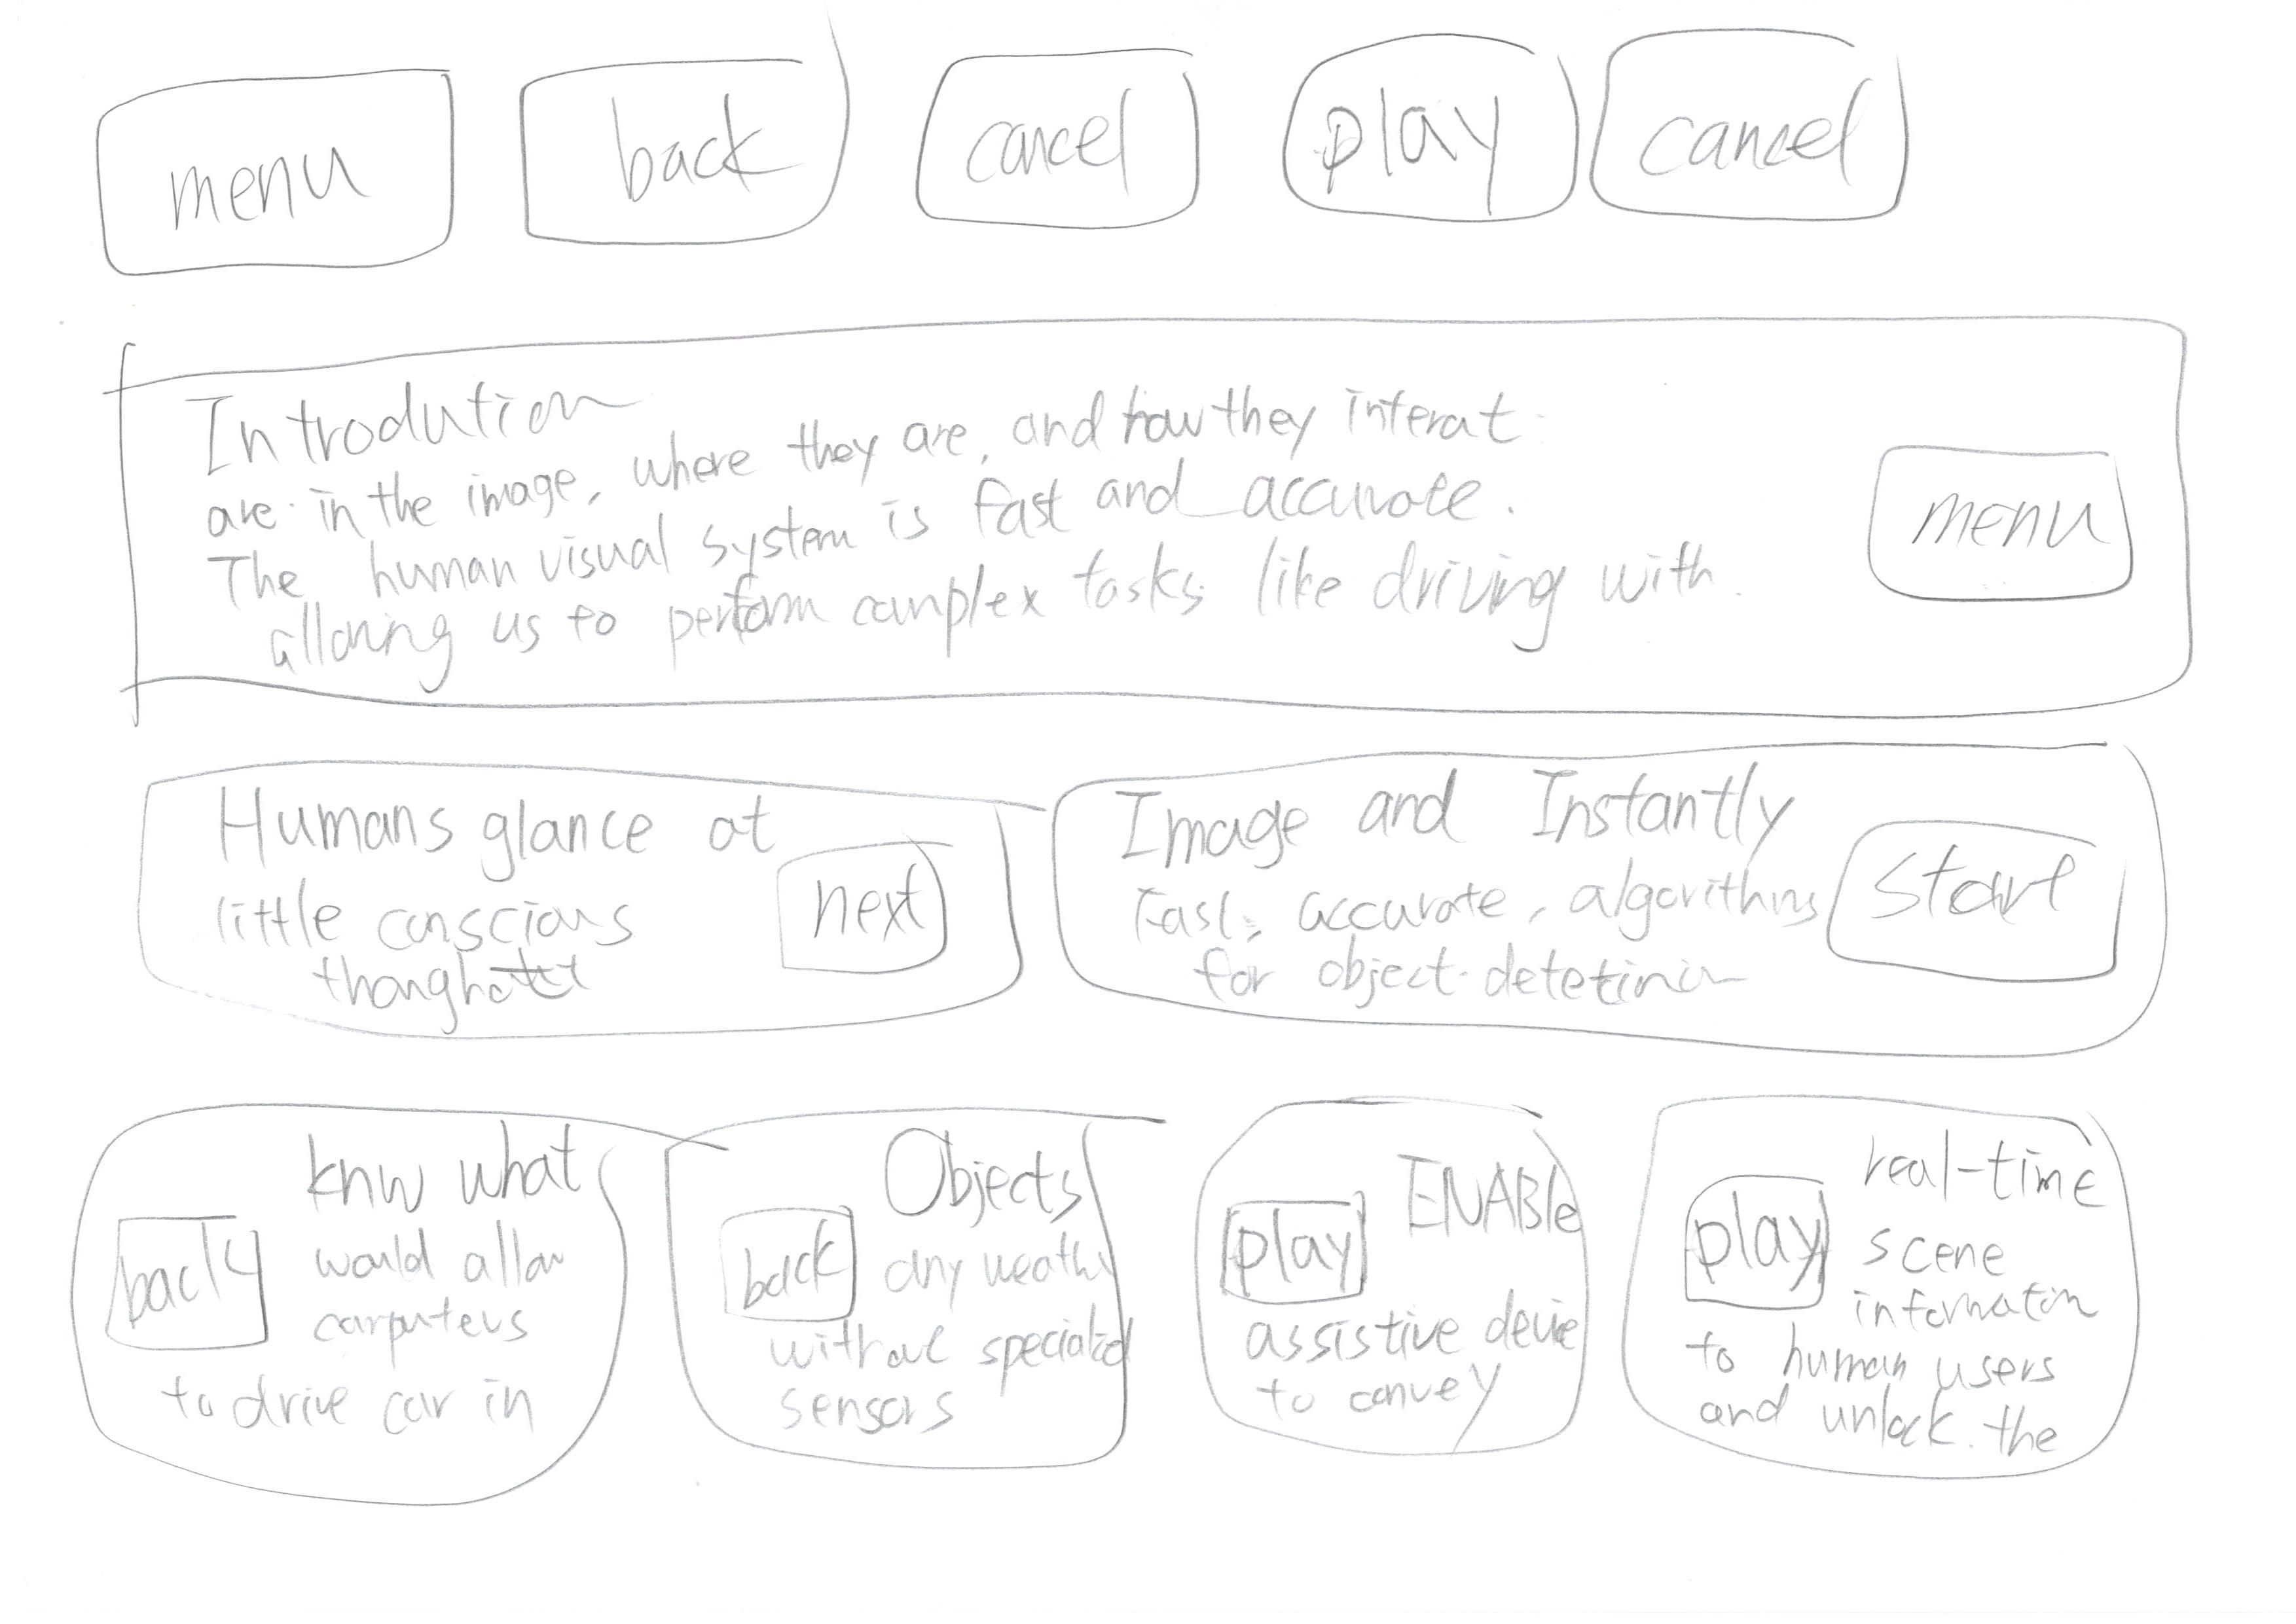 menu back cancel play cancel
Introdution
are in the image, where they are, and how they interat.
The human visual system is fast and accurate.
allowing us to perform complex tasks like driving with.
menu
Humans glance at
little conscious
next
Image and Instantly
Fast, accurate, algorithms
for object detetion
start
knw what
back
would allow
computers
to drive car in
Objects
back
any weather
without specialized
sensors
ENABle
play
assistive devie
to convey
real-time
play
scene
information
to human users
and unlock the